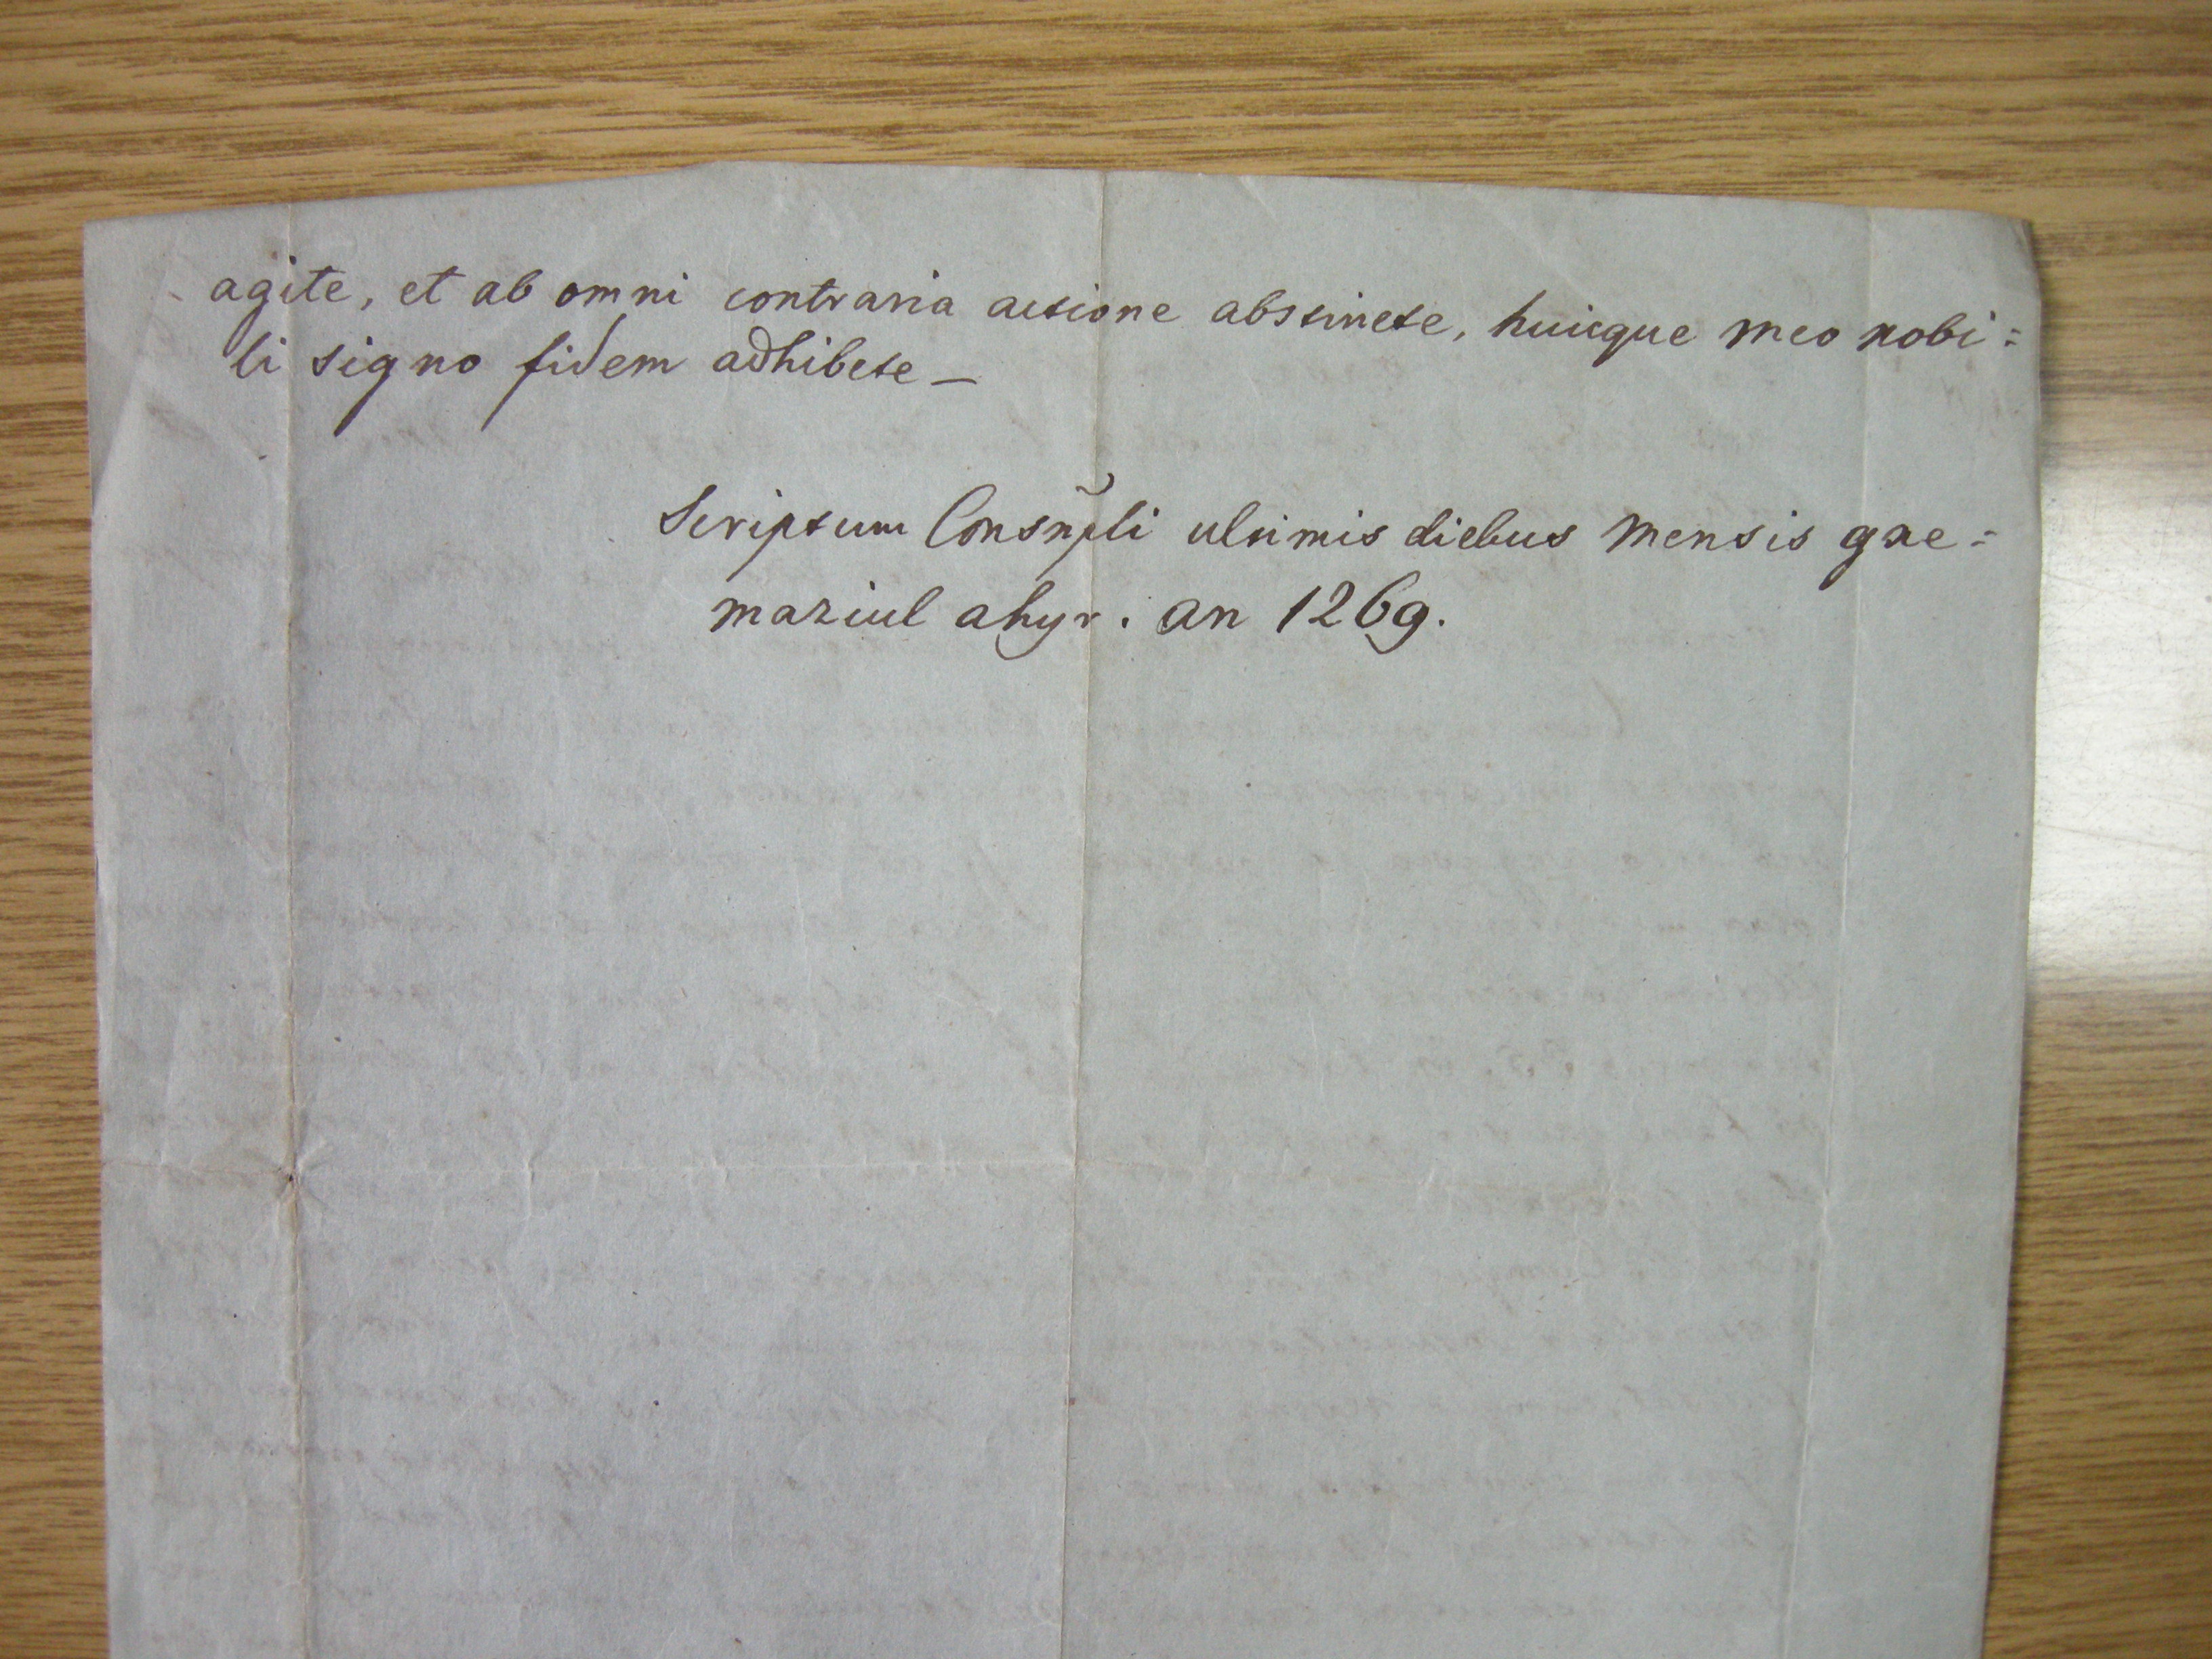 agite, et ab omni contraria actione abstinete, huicque meo nobi=
li signo fidem adhibete —
Scriptum Consñpli ultimis diebus mensis gae=
maziul ahyr. an 1269.